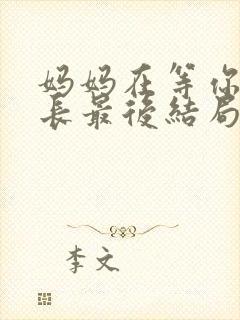 妈妈在等你
長最後結局
李文